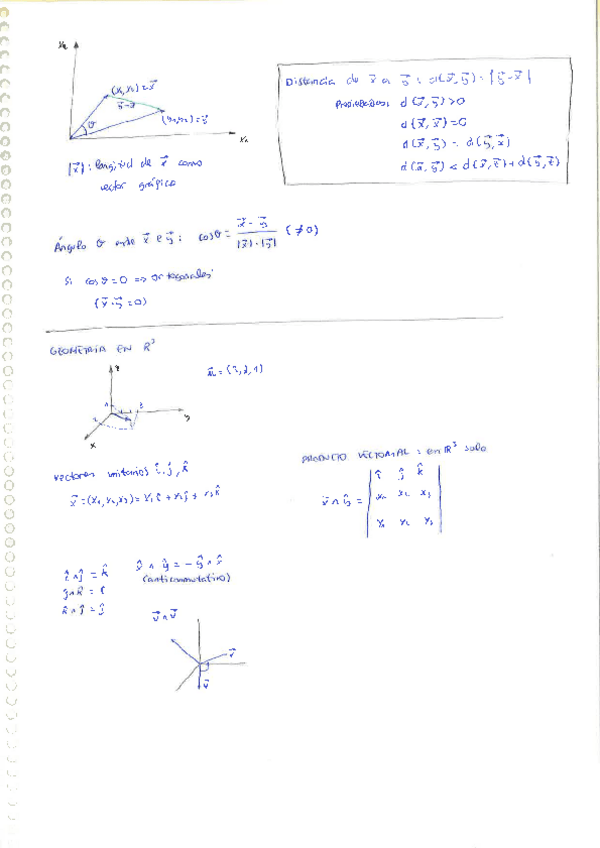 x₂
(x₁,x₂)=x⃗
y⃗-x⃗
θ
(y₁,y₂)=y⃗
x₁
|x⃗|: longitud de x⃗ como
vector gráfico
Distancia de x⃗ a y⃗ : d(x⃗,y⃗) = |y⃗-x⃗|
Propiedades: d(x⃗,y⃗)>0
d(x⃗,x⃗)=0
d(x⃗,y⃗) = d(y⃗,x⃗)
d(x⃗,y⃗) < d(x⃗,z⃗)+d(y⃗,z⃗)
Ángulo θ entre x⃗ e y⃗ : cosθ = x⃗ · y⃗ / |x⃗|·|y⃗| (≠0)
Si cosθ=0 => Ortogonales
(x⃗·y⃗=0)
GEOMETRÍA EN R³
z
y
x
vectores unitarios î, ĵ, k̂
x⃗=(x₁,x₂,x₃)=x₁î + x₂ĵ + x₃k̂
PRODUCTO VECTORIAL : en R³ solo
î ĵ k̂
x₁ x₂ x₃
y₁ y₂ y₃
î∧ĵ = k̂
ĵ∧k̂ = î
(anticonmutativo)